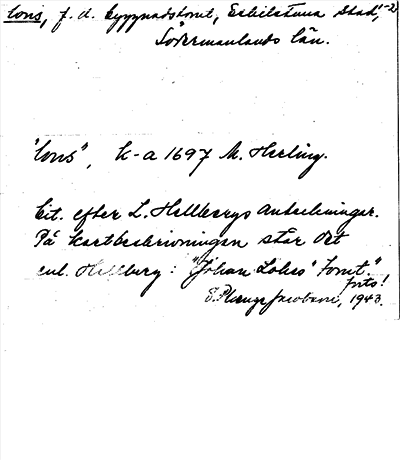 f. d. byggnadstomt, Eskilstuna stad,
Södermanlands län.
k-a 1697 M. Herling.
Cit. efter L. Hellbergs Anteckningar.
På kartbeskrivningen står det
enl. Hellberg: "Johan Lohes" Tomt.",
forts!
1943.